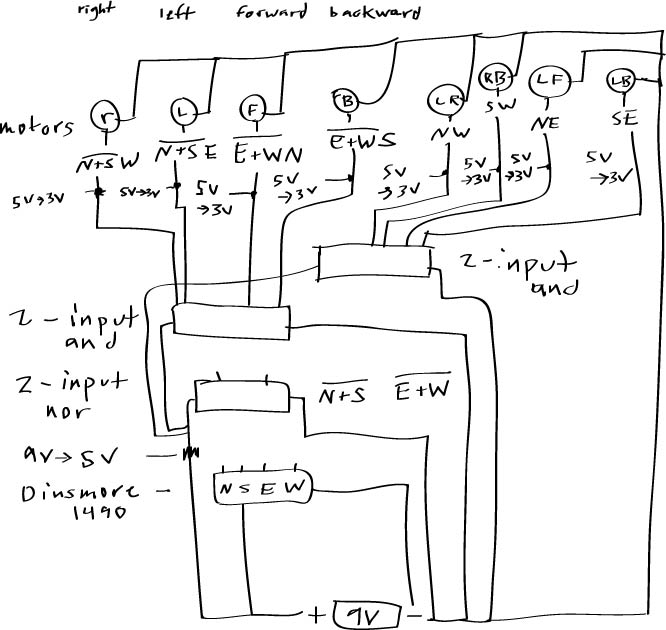 right left forward backward
r L F FB LR RB LF LB
motors
N+S W N+S E E+W N E+W S NW SW NE SE
5V→3V 5V→3V 5V
→3V 5V
→3V 5V
→3V 5V
→3V 5V
→3V 5V
→3V
2-input
and
2-input
and
2-input
nor
N+S E+W
9V→5V
Dinsmore
1490
N S E W
+ 9V -